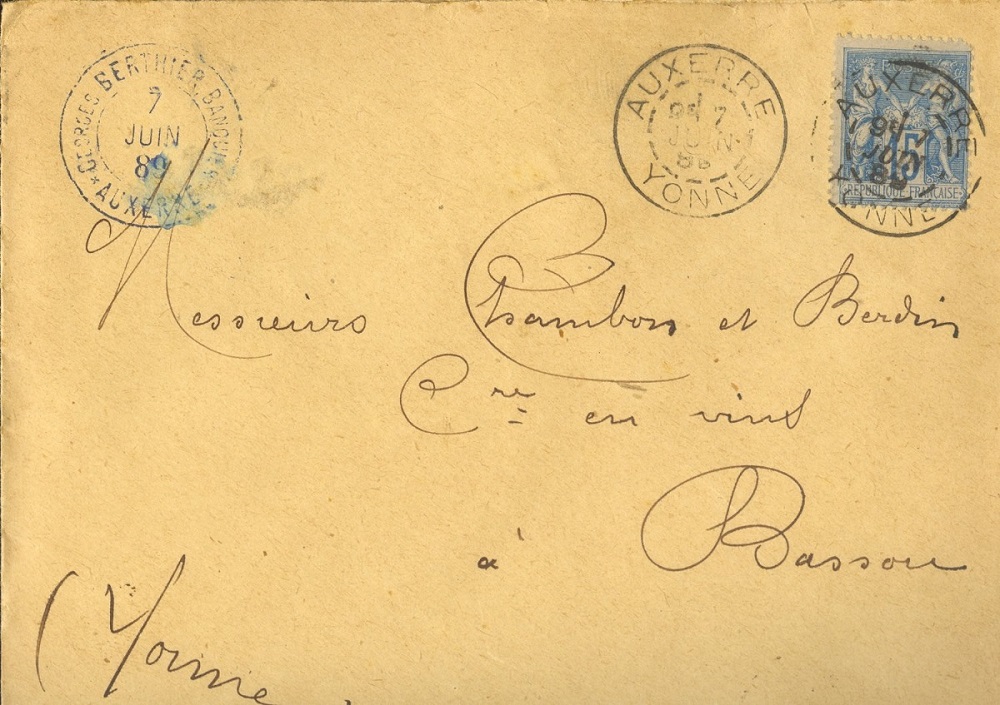 GEORGES BERTHIER, BANQUIER
7
JUIN
89
* AUXERRE *
AUXERRE
7
JUIN
YONNE
AUXERRE
7
JUIN
89
YONNE
15
REPUBLIQUE FRANCAISE
Messieurs Chambon et Berdin
Cre en vins
à Bassou
(Yonne